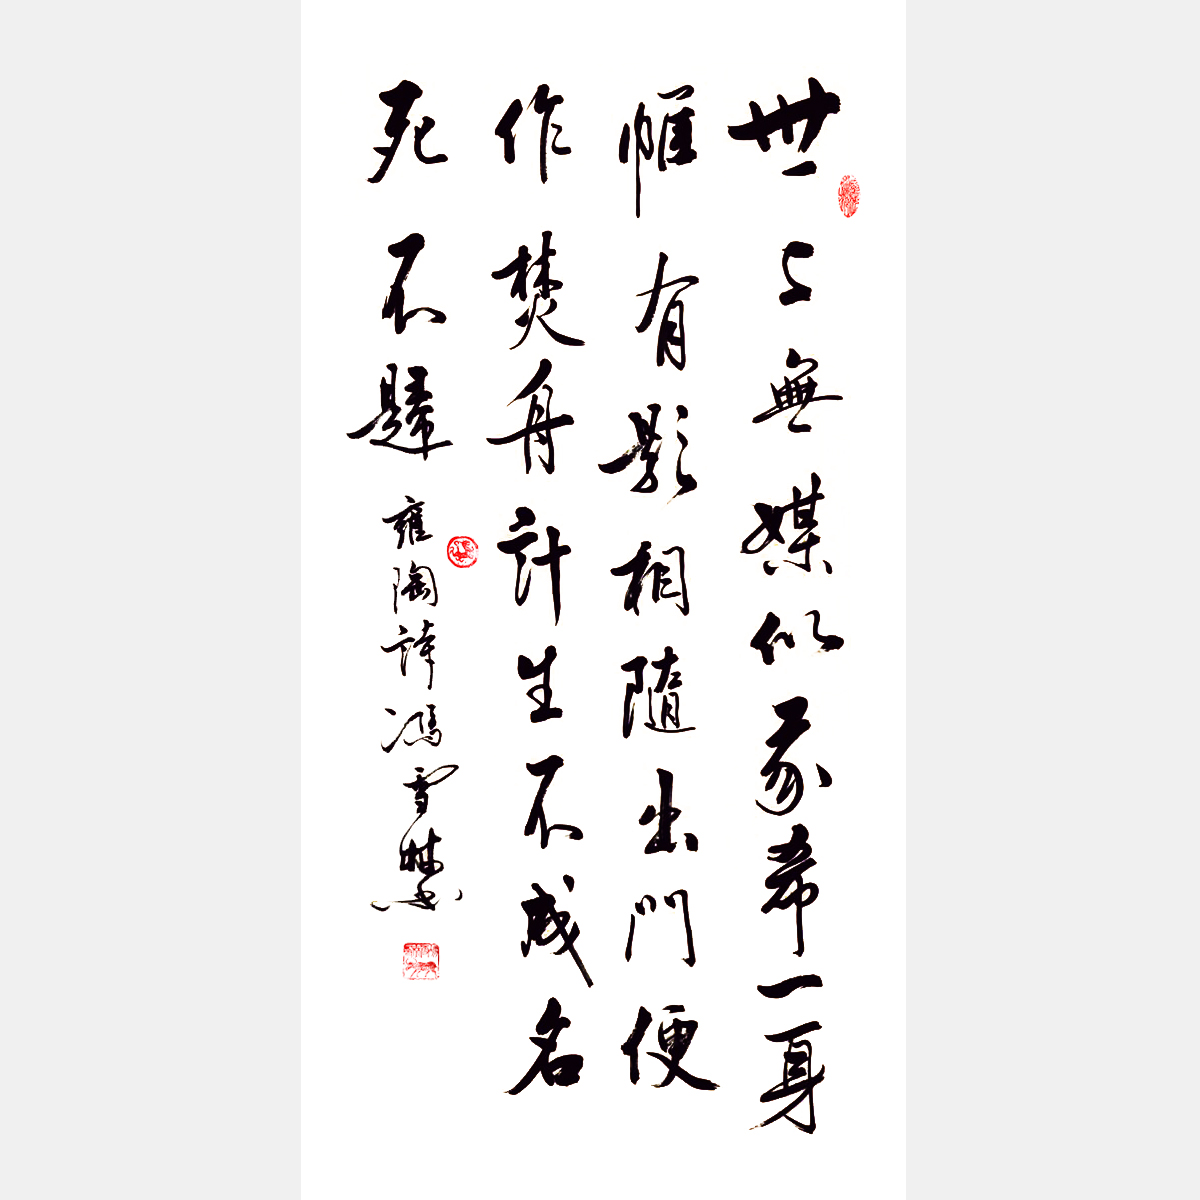 世上無媒似我希一身
惟有影相隨出門便
作焚舟計生不成名
死不歸
雍陶詩馮雪林書